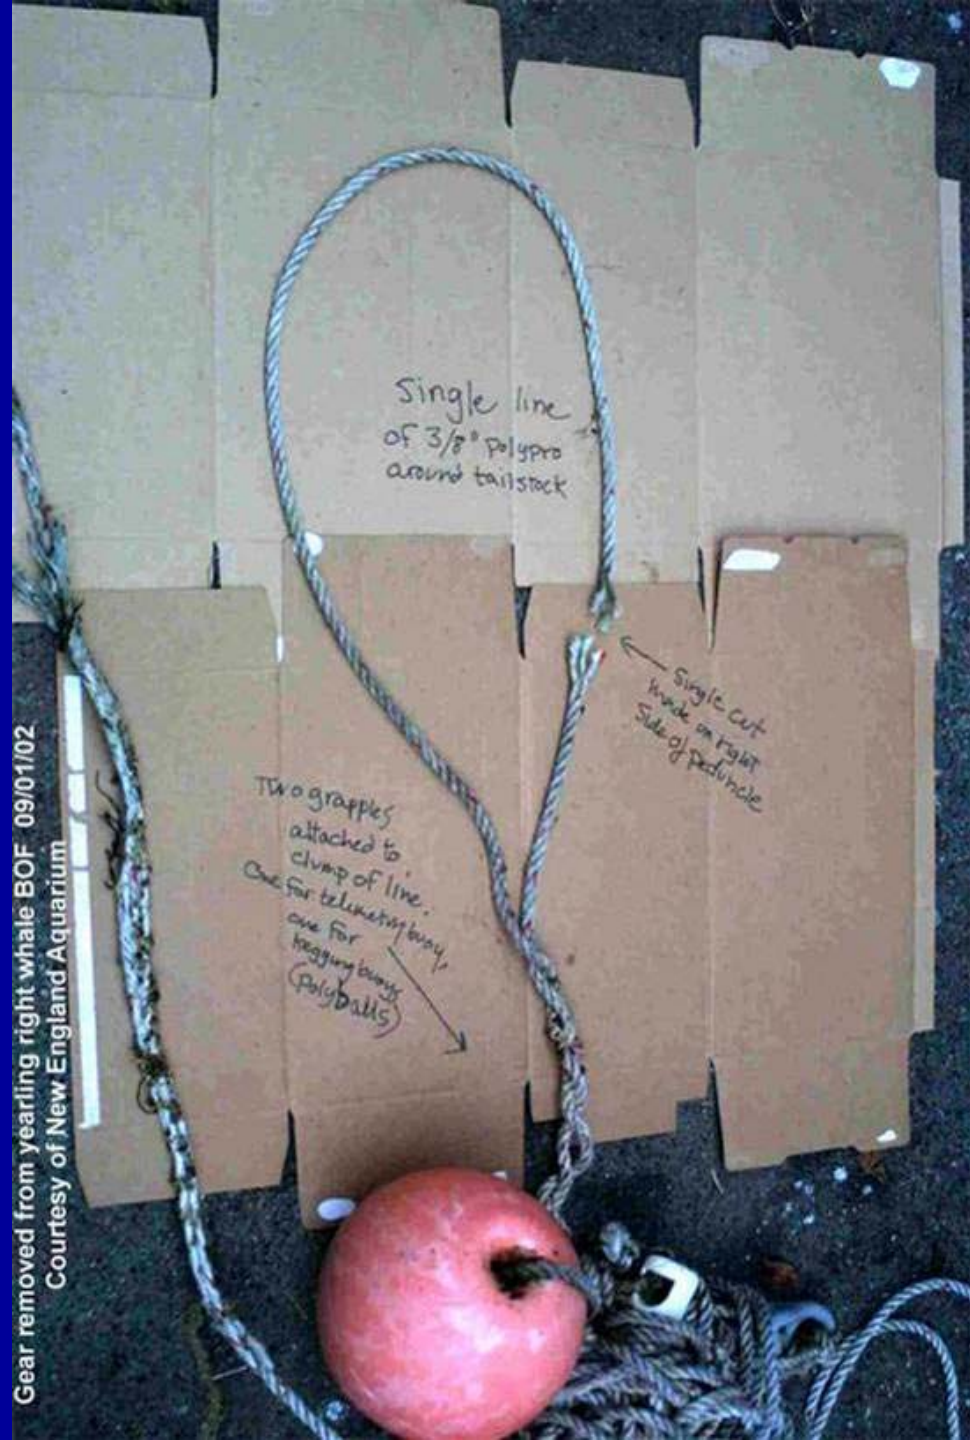 Single line
of 3/8" polypro
around tailstock
Single cut
made on right
side of peduncle
Two grapples
attached to
clump of line.
One for telemetry buoy,
one for
kegging buoys
(polyballs)
Gear removed from yearling right whale BOF 09/01/02
Courtesy of New England Aquarium